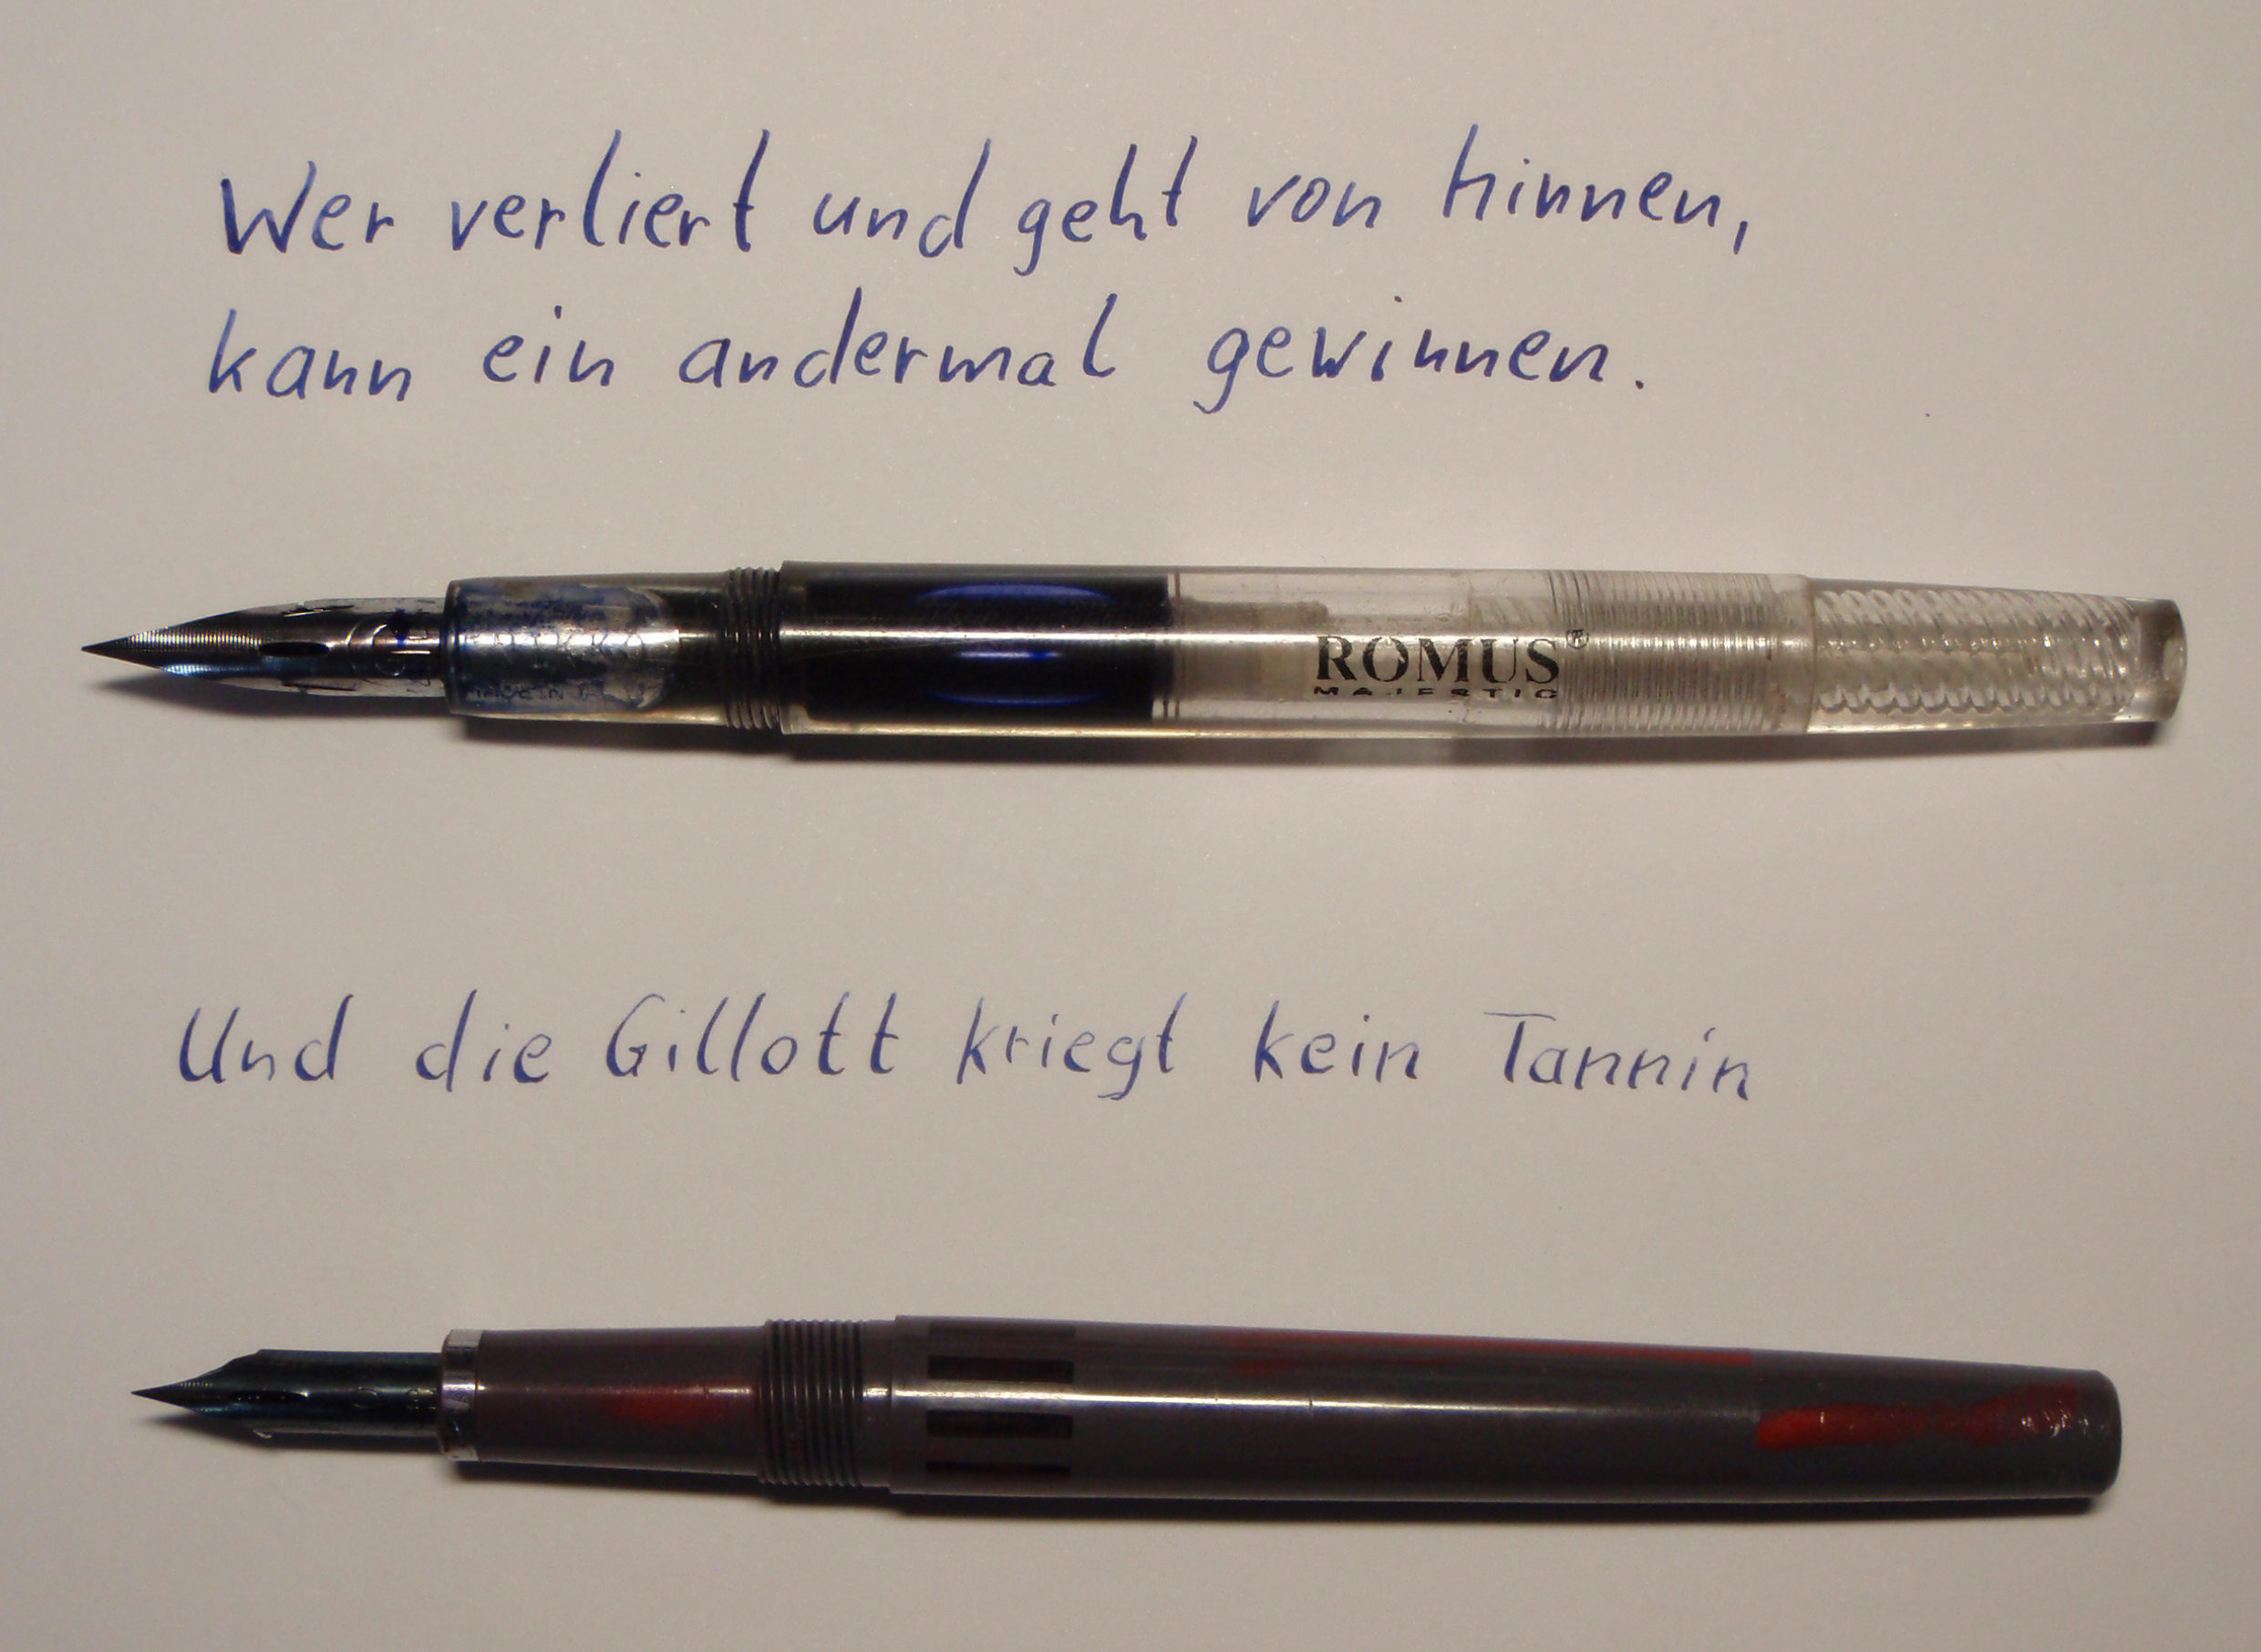 Wer verliert und geht von hinnen,
kann ein andermal gewinnen.
ROMUS®
MAJESTIC
Und die Gillott kriegt kein Tannin